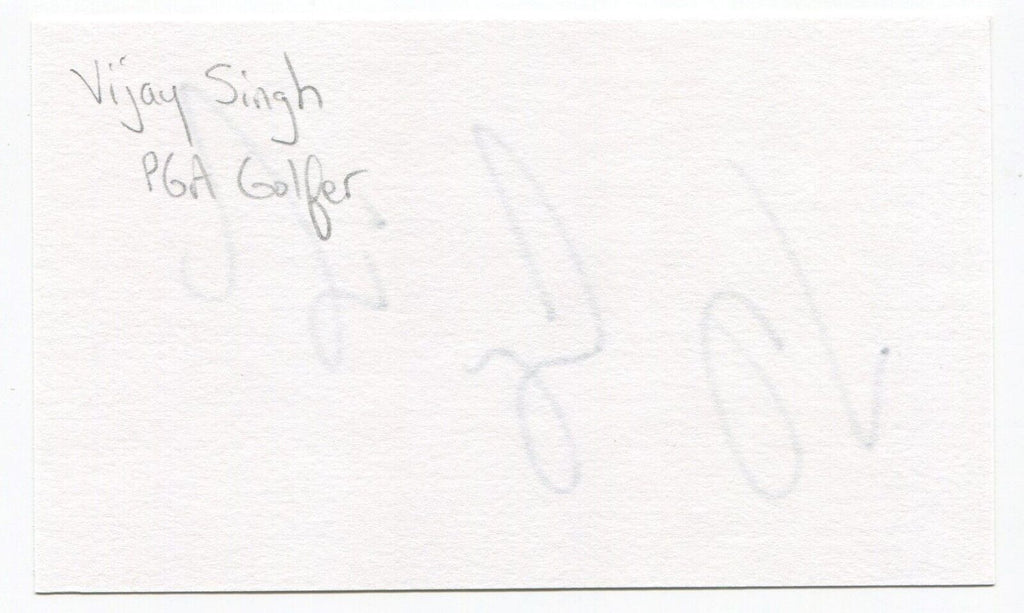 Vijay Singh
PGA Golfer